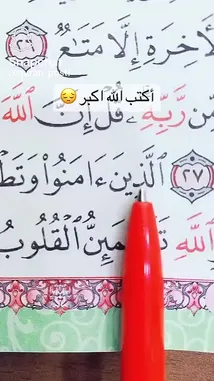 لْأَخِرَةِ إِلَّا مَتَٰعٌ ٢٦
أكتب الله أكبر 😔
مِّن رَّبِّهِۦ قُلْ إِنَّ ٱللَّهَ
٢٧ ٱلَّذِينَ ءَامَنُوا۟ وَتَطْ
ٱللَّهِ تَطْمَئِنُّ ٱلْقُلُوبُ